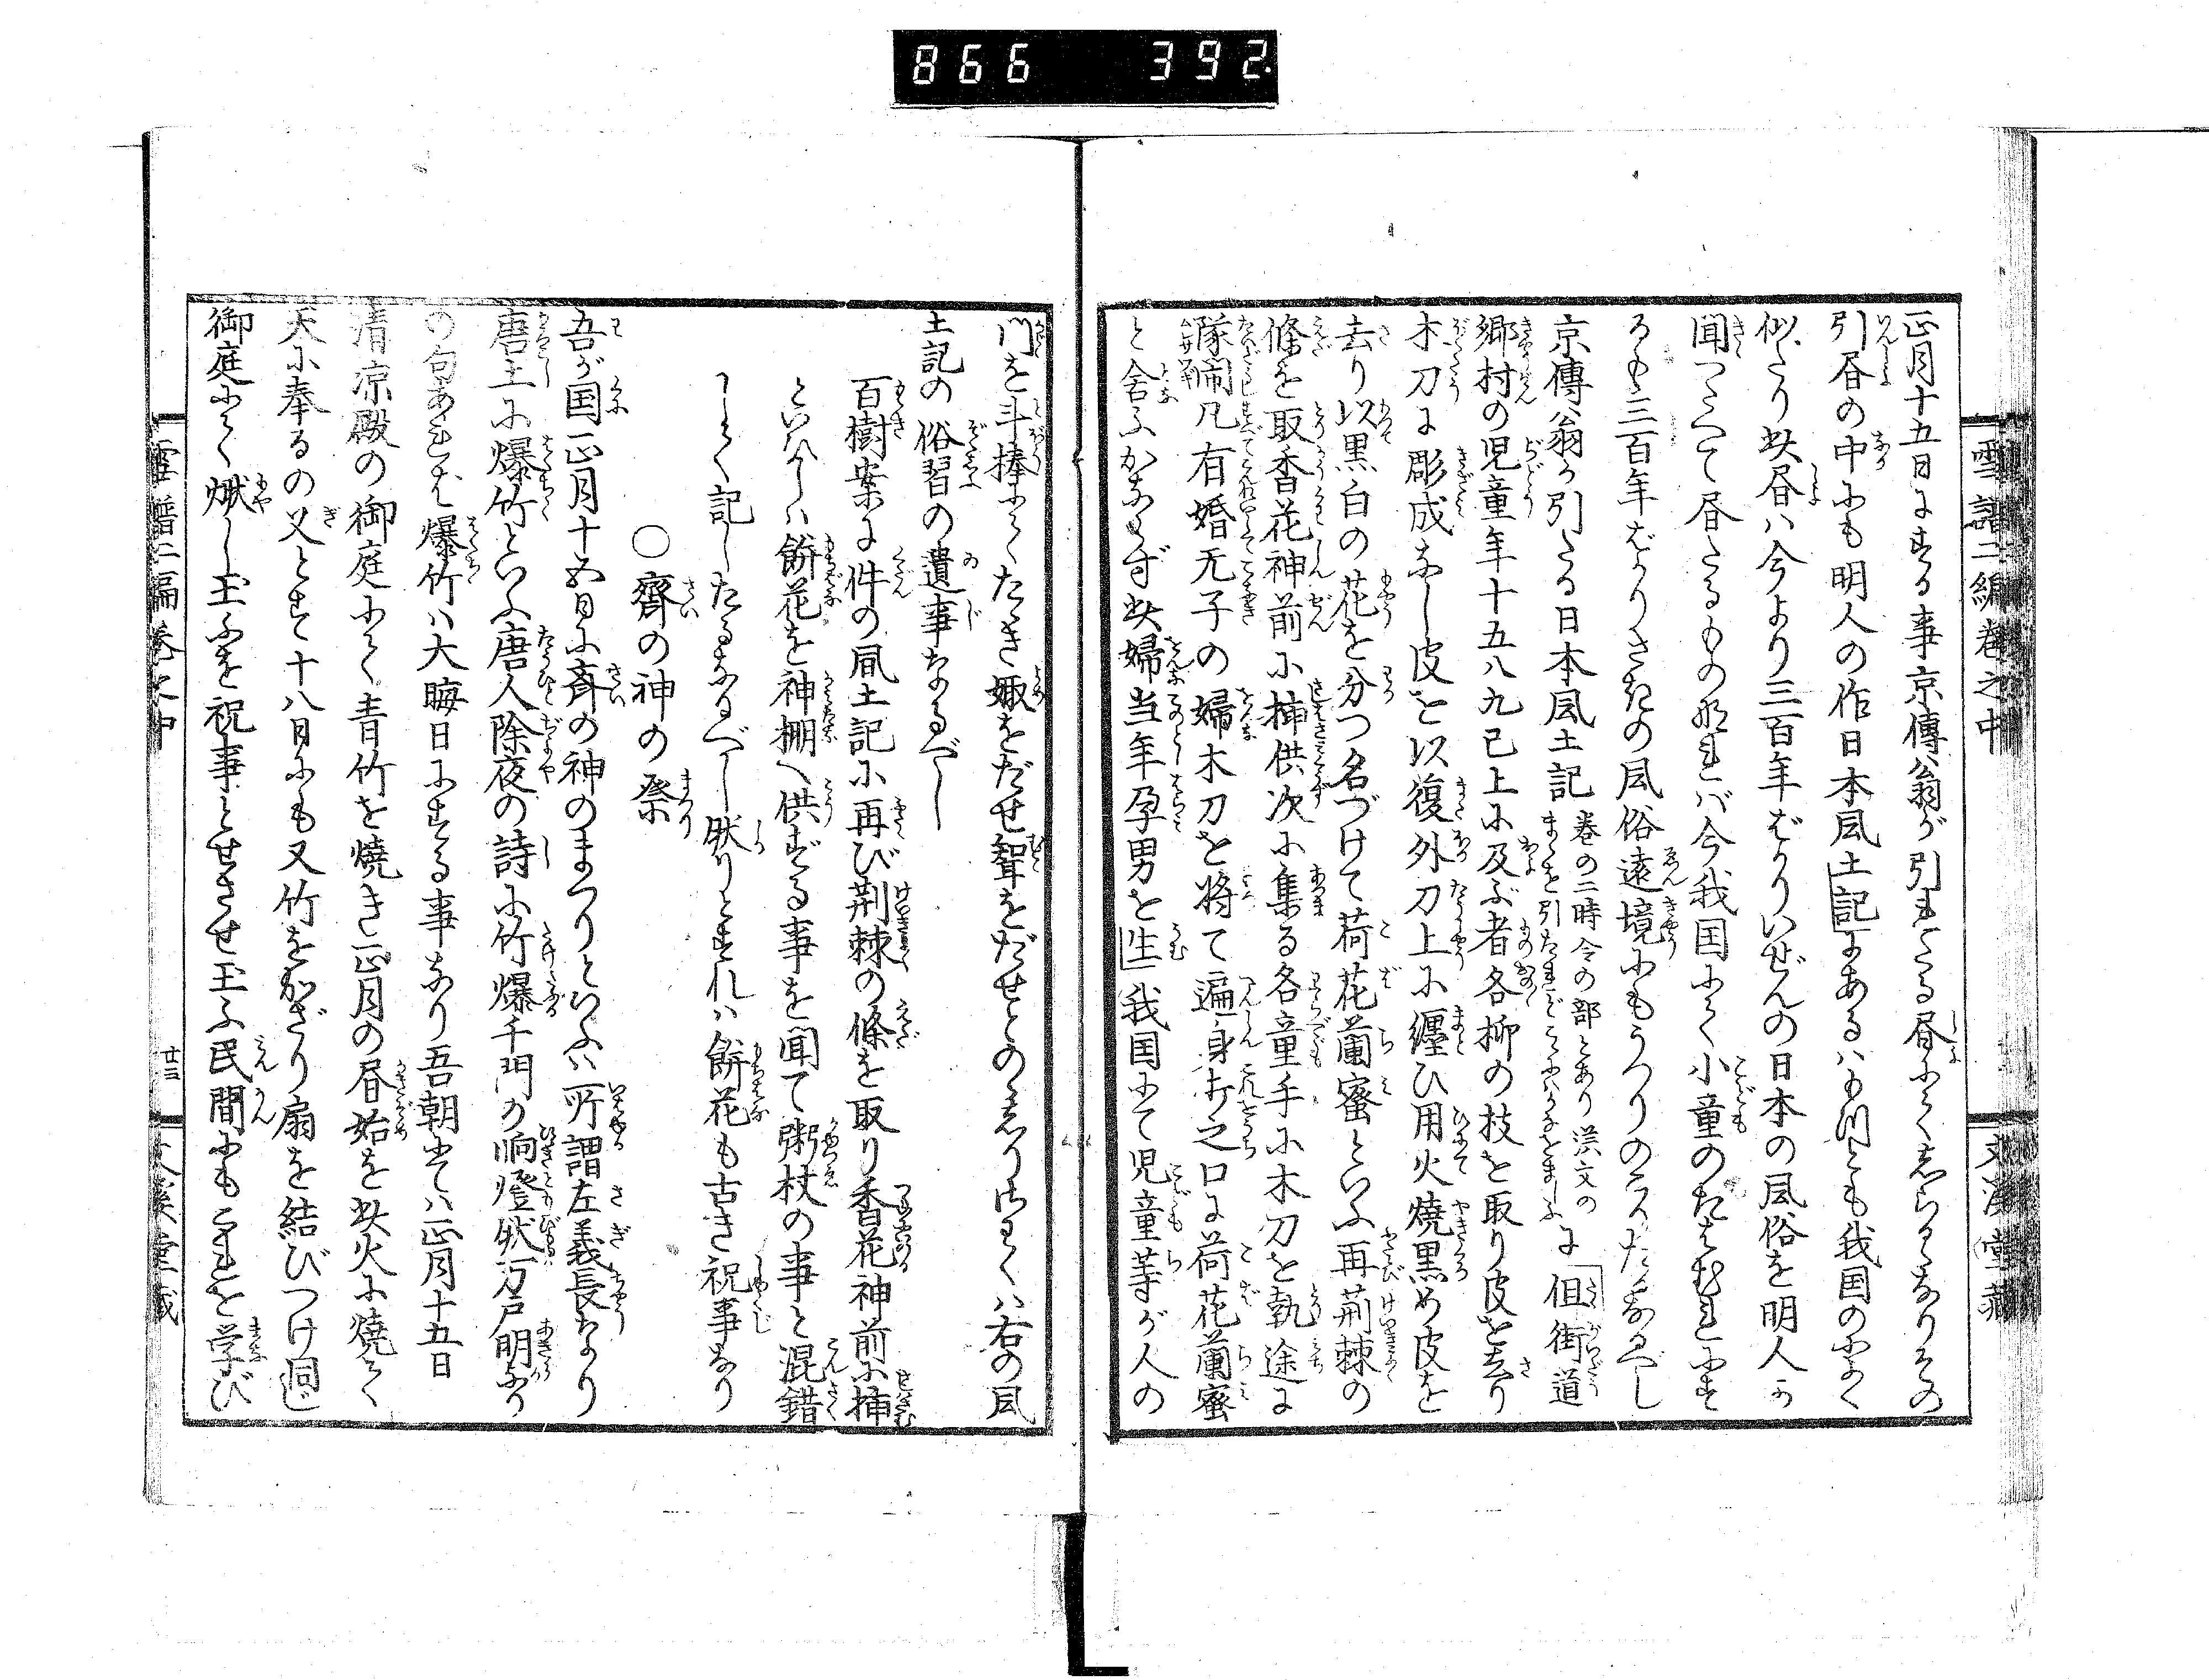 866 392
雪譜二編巻之中
文溪堂藏
正月十五日にする事京傳翁が引れたる昼にてしらるゝなりその
引昼の中にも明人の作日本風土記にあるは我国のにてよく
似たり此昼は今より三百年ばかりいぜんの日本の風俗を明人の
聞つたへて昼たるものなれバ今我国にて小童のたはむれにす
るも三百年ばかりさきの風俗遠境にもうつりのこりたるなるべし
京傳翁が引たる日本風土記巻の二時令の部とあり漢文のまゝを引たれどこゝにはかなをまじふに「但街道
郷村の児童年十五八九已上に及ぶ者各柳の枝を取り皮を去り
木刀に彫成なし皮を以復外刀上に纏ひ用火焼黒め皮を
去り以黒白の花を分つ名づけて荷花蘭蜜といふ再荆棘の
條を取香花神前に挿供次に集る各童手に木刀を執途に
隊閙凡有婚无子の婦木刀を将て遍身打之口に荷花蘭蜜
と舎ふかならず此婦当年孕男を生」我国にて児童等が人の
門を斗棒にてたゝき娵をだせ聟をだせとのゝしりさわぐは右の風
土記の俗習の遺事なるべし
百樹案に件の風土記に再び荆棘の條を取り香花神前に挿
といひしは餅花を神棚へ供ずる事を聞て粥杖の事と混錯
して記したるなるべし然りとすれば餅花も古き祝事なり
○齊の神の祭
吾が国正月十五日に斉の神のまつりといふは所謂左義長なり
唐土に爆竹といふ唐人除夜の詩に竹爆千門の响燈然万戸明なり
の句あれば爆竹は大晦日にする事なり吾朝にては正月十五日
清凉殿の御庭にて青竹を焼き正月の昼始を此火に焼て
天に奉るの义とす十八日にも又竹をかざり扇を結びつけ同じ
御庭にて燃し玉ふを祝事とせさせ玉ふ民間にもこれを学び
雪譜二編巻之中
廿三
文溪堂藏